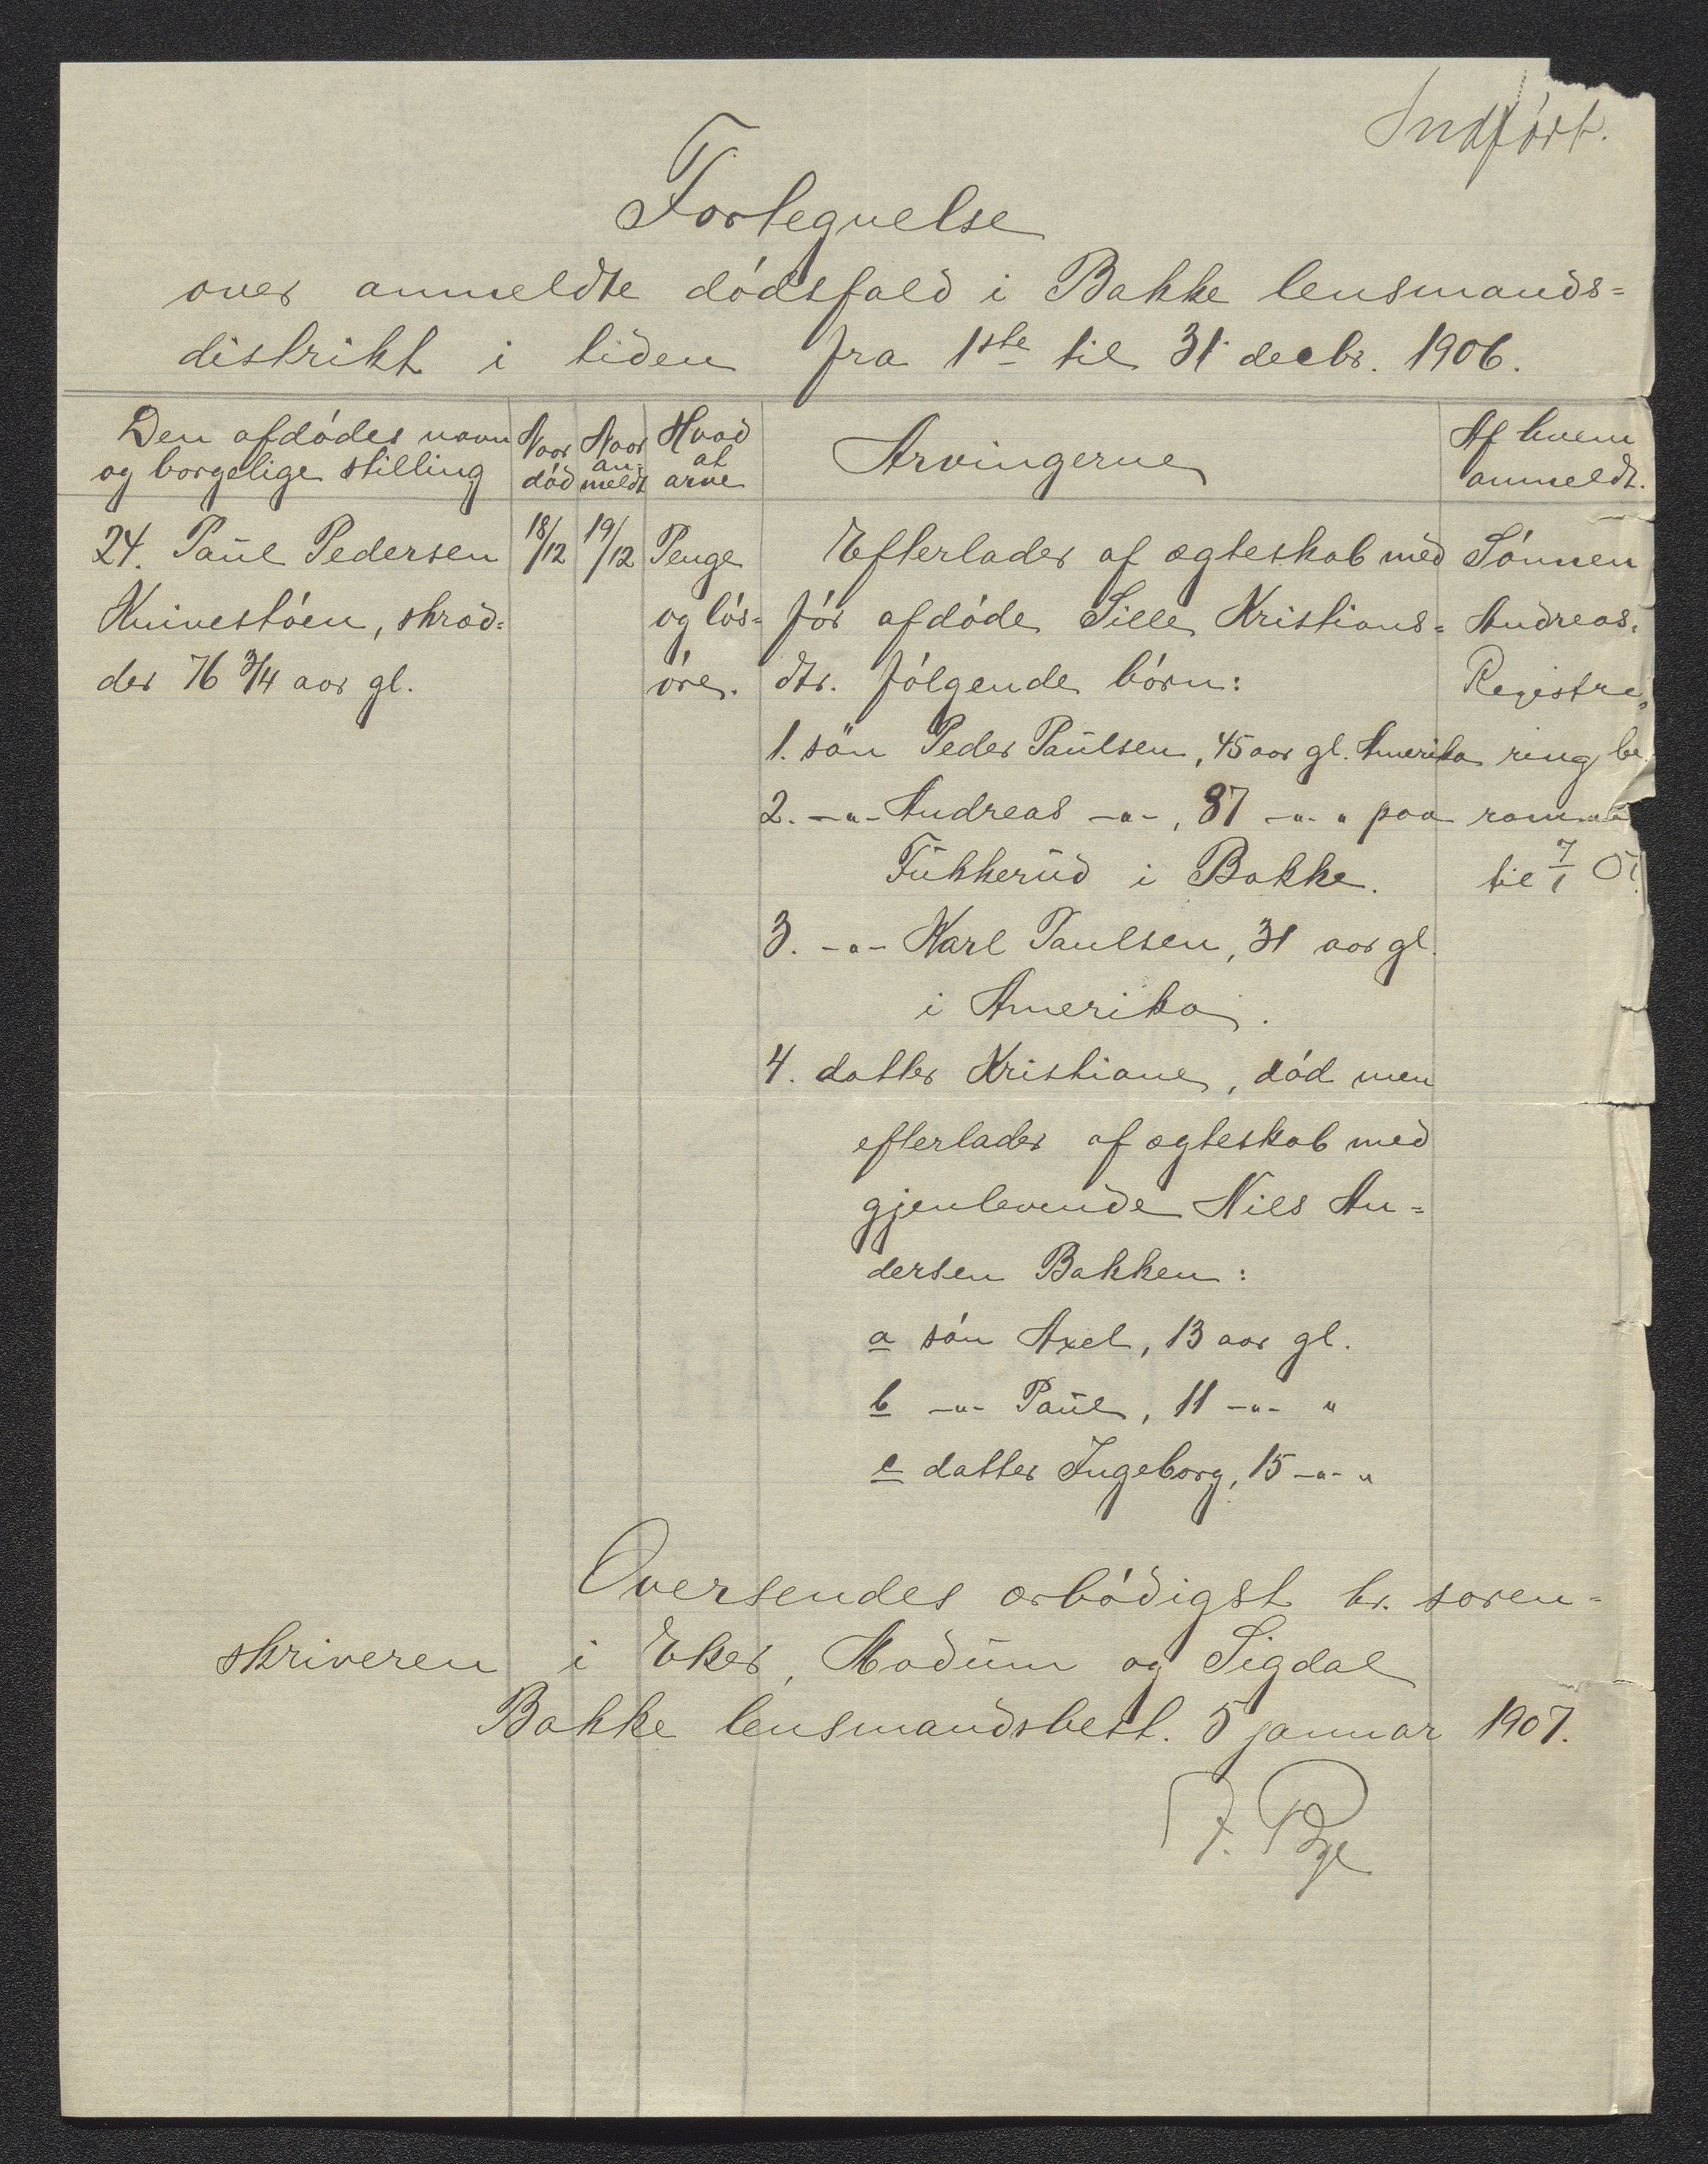 Indført.
Fortegnelse
over anmeldte dødsfald i Bakke lensmands=
distrikt i tiden fra 1ste til 31 decbr. 1906.
Den afdødes navn
og borgelige stilling
Naar
død
Naar
an=
meldt
Hvad
at
arve
Arvingerne
Af hvem
anmeldt.
24. Paul Pedersen
Knivestøen, skræd=
der 76 3/4 aar gl.
18/12
19/12
Penge
og løs=
øre.
Efterlader af ægteskab med
før afdøde Sille Kristians=
dtr. følgende børn:
1. søn Peder Paulsen, 45 aar gl. Amerika
2. -"- Andreas -"-, 37 -"- " paa
Fukkerud i Bakke.
3. -"- Karl Paulsen, 31 aar gl.
i Amerika.
4. datter Kristiane, død men
efterlader af ægteskab med
gjenlevende Nils An=
dersen Bakken:
a søn Axel, 13 aar gl.
b -"- Paul, 11 -"- "
c datter Ingeborg, 15 -"- "
Sønnen
Andreas.
Registre=
ring be
ram
til 7/1
Oversendes ærbødigst hr. soren=
skriveren i Eker, Modum og Sigdal
Bakke lensmandsbest. 5 januar 1907.
F. Bye